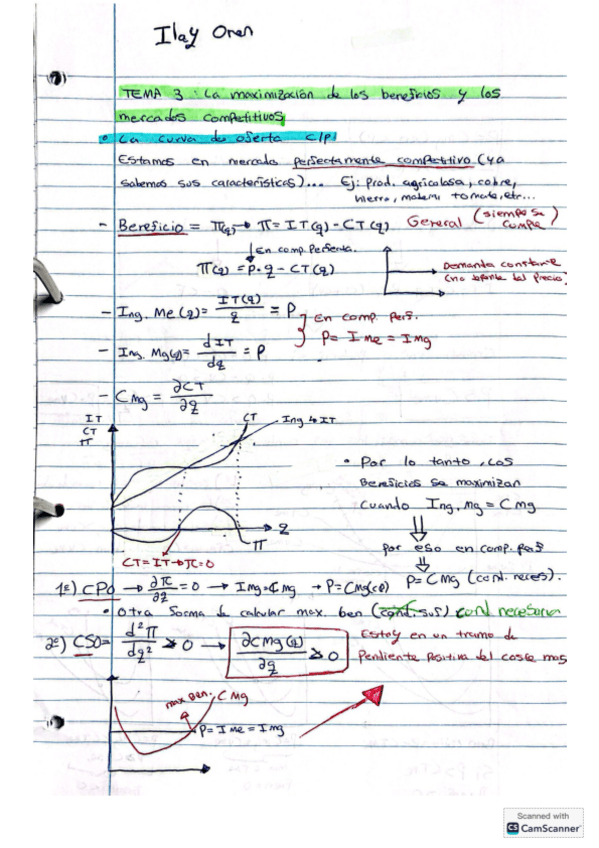 Ilay Oren
TEMA 3: La maximización de los beneficios y los
mercados competitivos
• La curva de oferta c/p
Estamos en mercado perfectamente competitivo (ya
sabemos sus características)... Ej: Prod. agrícolas, cobre,
hierro, tomate, etc...
- Beneficio = π(q) → π = IT(q) - CT(q) General (siempre se cumple)
↓ En comp. Perfecta.
π(q) = p·q - CT(q)
Demanda constante
(no del Precio)
- Ing. Me (q) = IT(q)/q = P
- Ing. Mg(q) = dIT/dq = P
} En comp. Perf.
P = IMe = IMg
- CMg = ∂CT/∂q
IT
CT
π
CT
Ing → IT
q
π
CT = IT → π = 0
• Por lo tanto, los
Beneficios se maximizan
cuando Ing. Mg = CMg
⇓
por eso en comp. perf
⇓
P = CMg (cond. neces).
1º) CPO → ∂π/∂q = 0 → IMg = CMg → P = CMg(q)
• Otra forma de calcular max. ben (cond. suf) cond necesaria
2º) CSO = d²π/dq² > 0 → ∂CMg(q)/∂q > 0
Estoy en un tramo de
Pendiente Positiva del coste
max Ben.
CMg
P = IMe = IMg
Scanned with
CS CamScanner